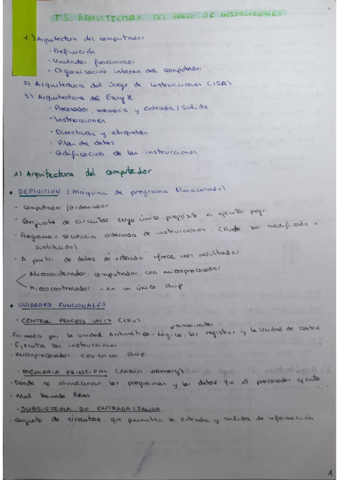 T.5. ARQUITECTURA DEL JUEGO DE INSTRUCCIONES
1) Arquitectura del computador
- Definición
- Unidades funcionales
- Organización interna del computador
2) Arquitectura del Juego de Instrucciones (ISA)
3) Arquitectura del Easy8
- Procesador, memoria y entrada/Salida
- Instrucciones
- Directivas y etiquetas
- de datos
- Codificación de las instrucciones
1) Arquitectura del computador
• DEFINICIÓN (Máquina de programa Almacenado)
- Computador /Ordenador
- Conjunto de circuitos cuyo único propósito es ejecutar
- Programa = secuencia ordenada de instrucciones. (Puede ser modificado o
sustituido)
- A partir de datos de entrada ofrece unos resultados
Microordenador: computador con microprocesador
Microcontrolador: en un único chip
• UNIDADES FUNCIONALES
- CENTRAL PROCESS UNIT (CPU)
- Formada por la Unidad Aritmético-Lógica, los registros y la Unidad de control
- Ejecuta las instrucciones
- Microprocesador: CPU en un chip
- MEMORIA PRINCIPAL (Main memory)
- Donde se almacenan los programas y los datos que el procesador ejecuta
- Mal llamada RAM
- SUBSISTEMA DE ENTRADA/SALIDA
- Conjunto de circuitos que permiten la entrada y salida de información
1